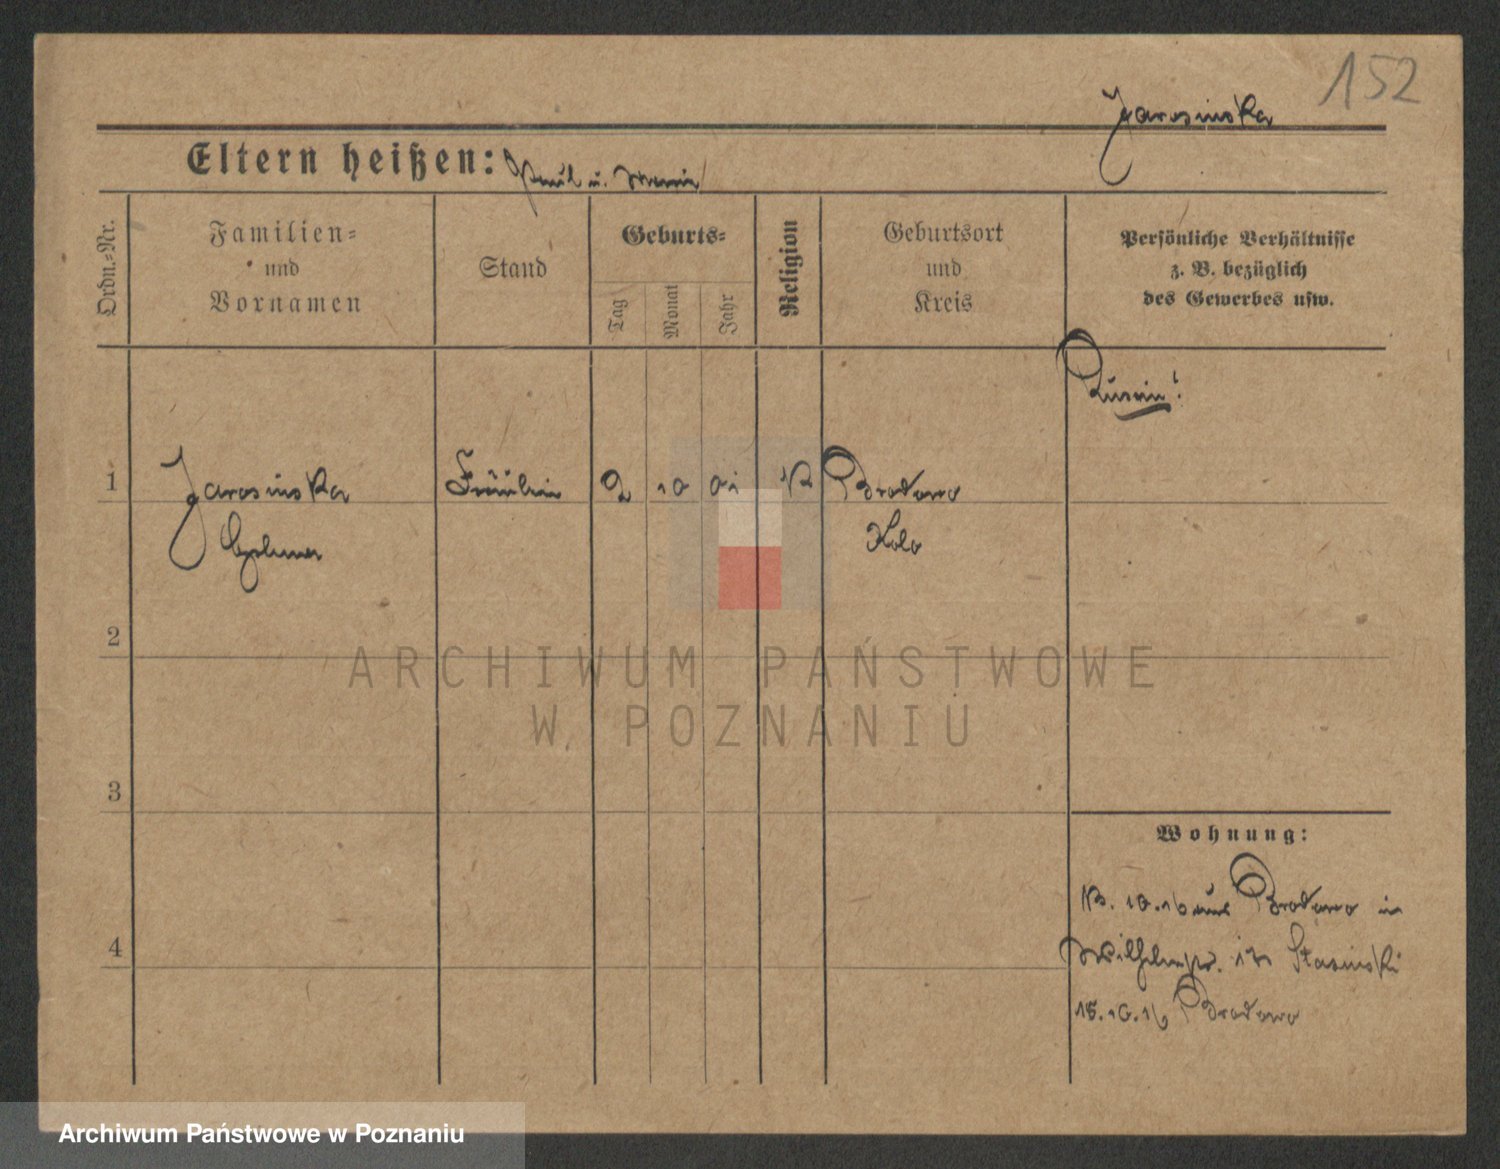 152
Jarosinska
Eltern heißen: Paul u. Maria
Ordn.=Nr.
Familien=
und
Vornamen
Stand
Geburts=
Tag
Monat
Jahr
Religion
Geburtsort
und
Kreis
Persönliche Verhältnisse
z. B. bezüglich
des Gewerbes usw.
1
Jarosinska
Fräulein
2
10
01
K
Brodowo
Kolo
2
3
4
Wohnung:
13. 10. 16 aus Brodowo in
Wilhelmstr. Stasinski
15. 10. 16 Brodowo
ARCHIWUM PAŃSTWOWE
W POZNANIU
Archiwum Państwowe w Poznaniu